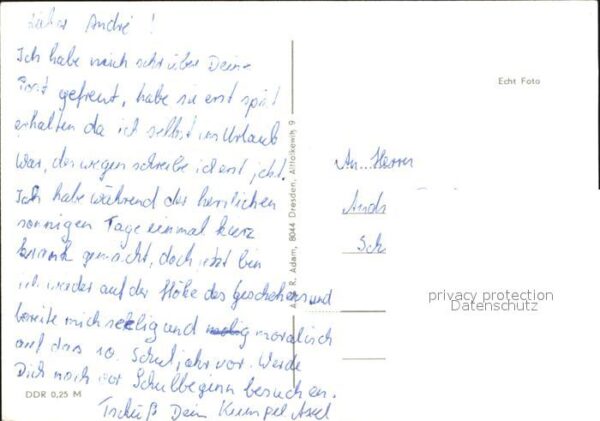 Lieber André!
Ich habe mich sehr über Deine
Post gefreut, habe sie erst spät
erhalten da ich selbst im Urlaub
war, deswegen schreibe ich erst jetzt.
Ich habe während der herrlichen
sonnigen Tage einmal kurz
krank gemacht, doch jetzt bin
ich wieder auf der Höhe des Geschehens und
bereite mich seelig und moralisch
auf das 10. Schuljahr vor. Werde
Dich noch vor Schulbeginn besuchen.
Tschüß Dein Kumpel Axel
DDR 0,25 M
A. u. R. Adam, 8044 Dresden, Altlolkewitz 9
Echt Foto
An Herrn
And
Sch
privacy protection
Datenschutz